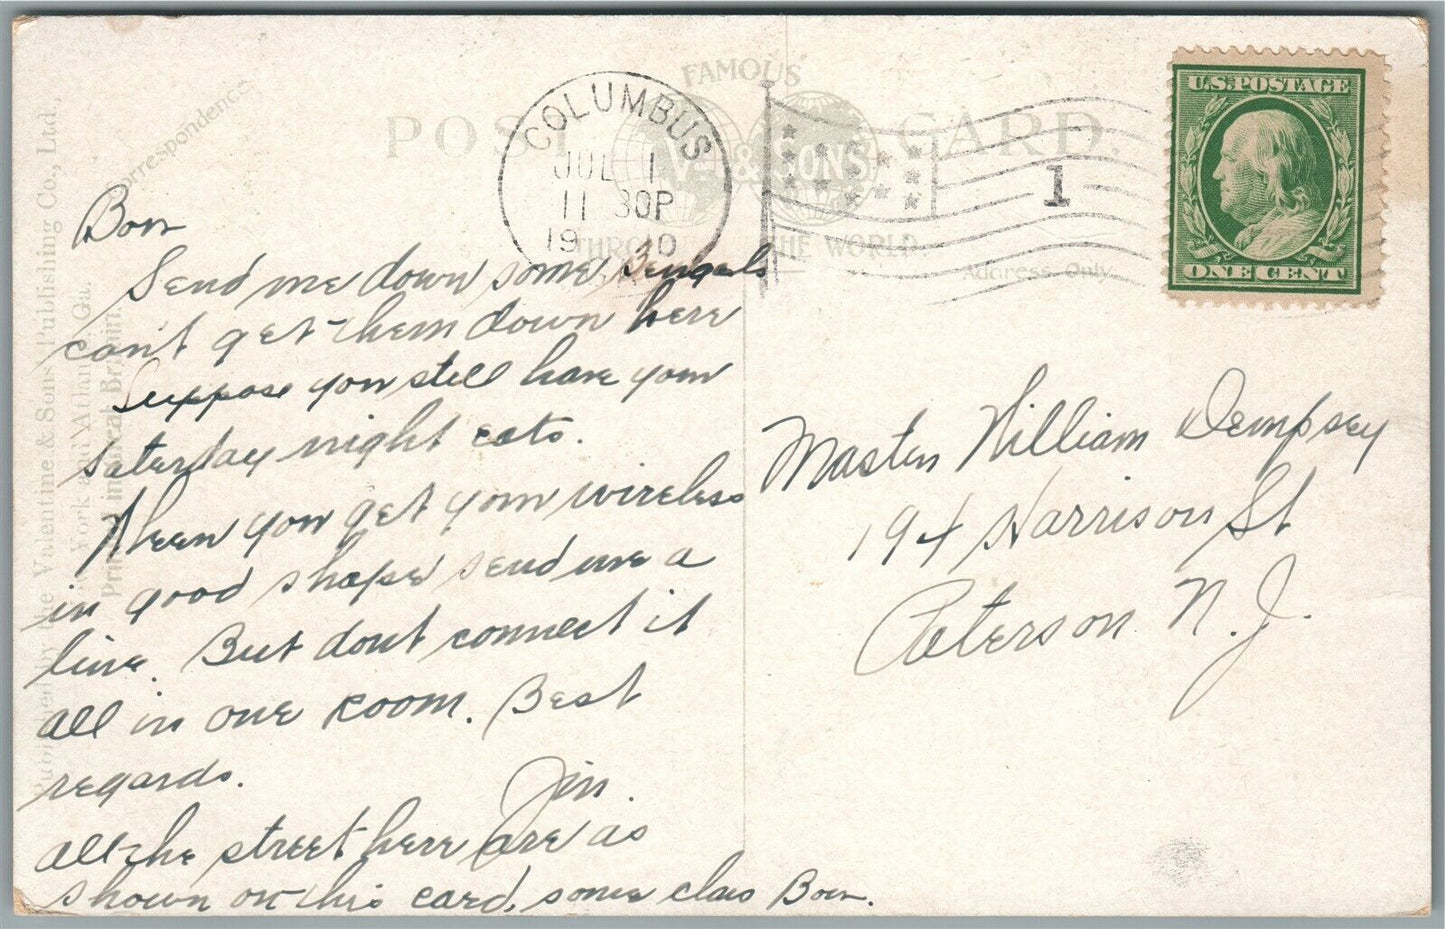 FAMOUS
POST CARD
& SONS
THROUGHOUT THE WORLD.
Correspondence.
Address Only.
COLUMBUS
JUL 1
11 30P
1910
1
U.S. POSTAGE
ONE CENT
Published by the Valentine & Sons' Publishing Co., Ltd.,
New York and Atlanta, Ga.
Printed in Great Britain.
Send me down some
can't get them down here
Suppose you still have your
saterday night eats.
When you get your wireless
in good shape send me a
line. But dont connect it
all in one room. Best
regards.
Jim.
all the street here are as
shown on this card. some class
Master William Dempsey
194 Harrison St
Paterson N. J.